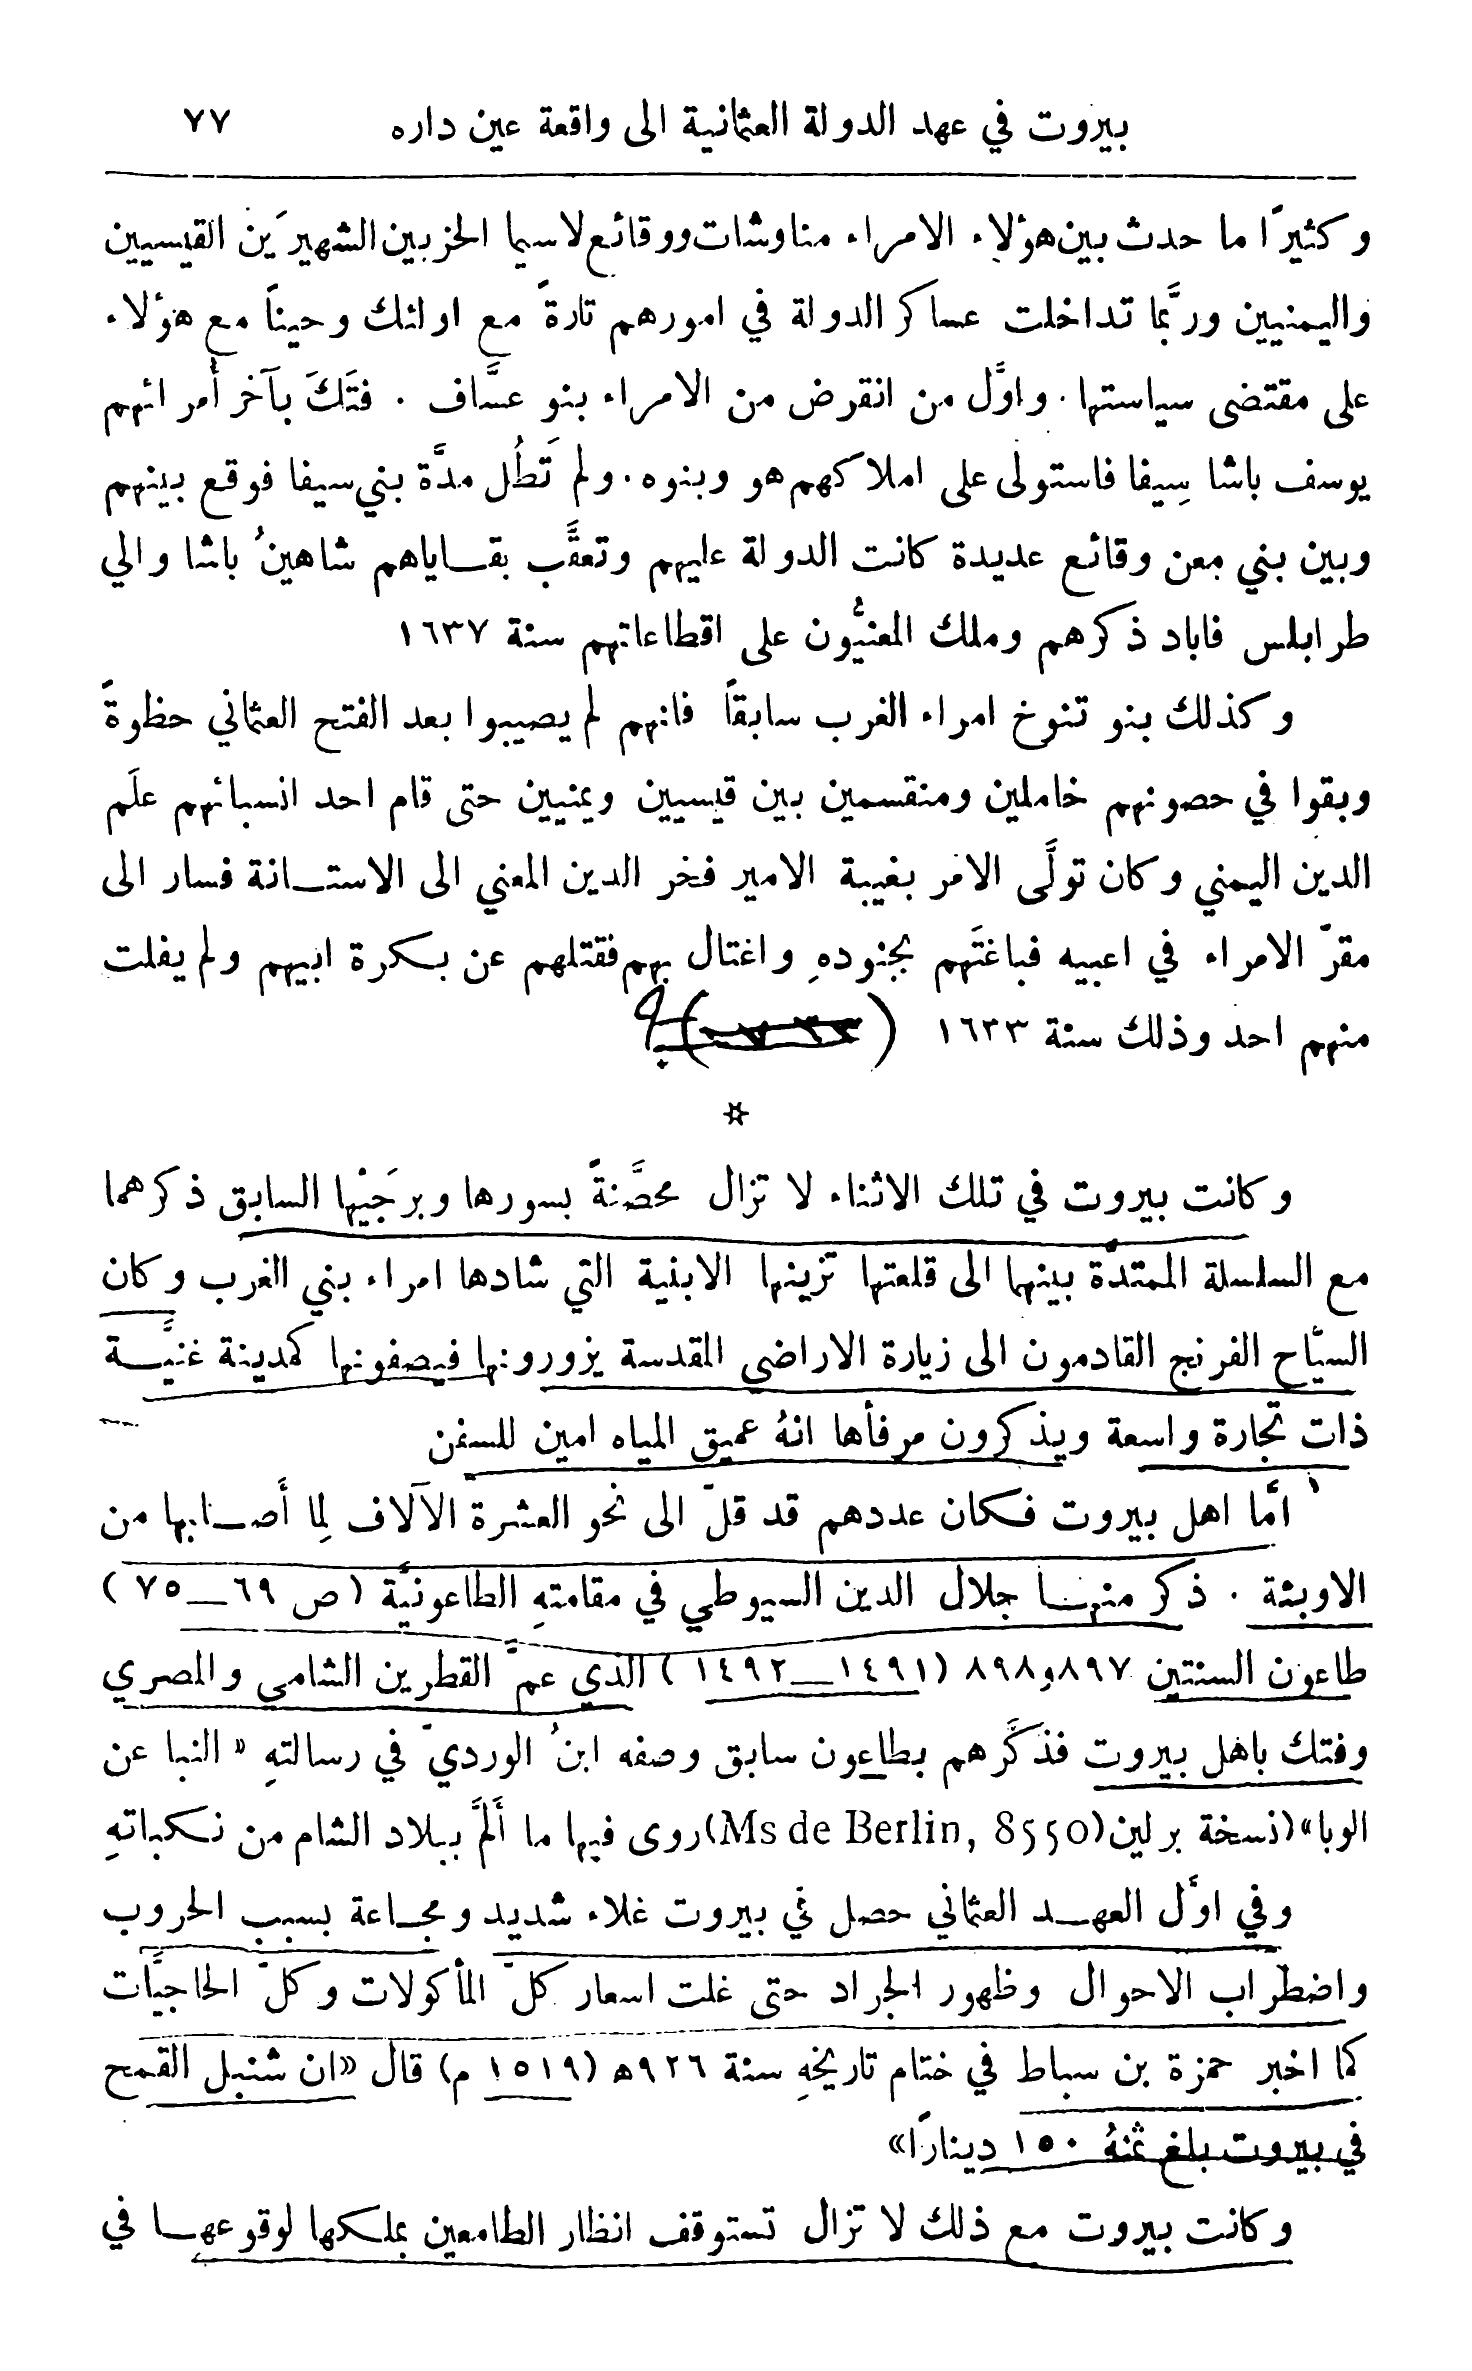 بيروت في عهد الدولة العثمانية الى واقعة عين داره ٧٧
وكثيرًا ما حدث بين هؤلاء الامراء مناوشات ووقائع لا سيما الحزبين الشهيرَين القيسيين
واليمنيين وربَّما تداخلت عساكر الدولة في امورهم تارةً مع اولئك وحيناً مع هؤلاء
على مقتضى سياستها . واوَّل من انقرض من الامراء بنو عسَّاف . فتَكَ بآخر أُمرائهم
يوسف باشا سِيفا فاستولى على املاكهم هو وبنوه . ولم تَطُل مدَّة بني سيفا فوقع بينهم
وبين بني معن وقائع عديدة كانت الدولة عليهم وتعقَّب بقـاياهم شاهينُ باشا والي
طرابلس فاباد ذكرهم وملك المعنيُّون على اقطاعاتهم سنة ١٦٣٧
وكذلك بنو تنوخ امراء الغرب سابقاً فانهم لم يصيبوا بعد الفتح العثماني حظوةً
وبقوا في حصونهم خاملين ومنقسمين بين قيسيين ويمنيين حتى قام احد انسبائهم علَم
الدين اليمني وكان تولَّى الامر بغيبة الامير فخر الدين المعني الى الاستـانة فسار الى
مقرّ الامراء في اعبيه فباغتَهم بجنودهِ واغتال بهم فقتلهم عن بـكرة ابيهم ولم يفلت
منهم احد وذلك سنة ١٦٣٣
☆
وكانت بيروت في تلك الاثناء لا تزال محصَّنةً بسورها وبرجَيْها السابق ذكرهما
مع السلسلة الممتدَّة بينهما الى قلعتها تزينها الابنية التي شادها امراء بني الغرب وكان
السيَّاح الفرنج القادمون الى زيارة الاراضي المقدسة يزورونها فيصفونها كمدينة غنيَّـة
ذات تجارة واسعة ويذكرون مرفأها انهُ عميق المياه امين للسفن
امَّا اهل بيروت فـكان عددهم قد قلّ الى نحو العشرة الآلاف لِما أَصـابها من
الاوبئة . ذكر منهـا جلال الدين السيوطي في مقامتهِ الطاعونيَّة (ص ٦٩ـ٧٥)
طاعون السنتين ٨٩٧و٨٩٨ (١٤٩١ـ١٤٩٢) الذي عمَّ القطرين الشامي والمصري
وفتك باهل بيروت فذكَّرهم بطاعون سابق وصفه ابنُ الورديّ في رسالتهِ «النبا عن
الوبا» (نسخة برلين (Ms de Berlin, 8550) روى فيها ما أَلَمَّ ببلاد الشام من نـكباتهِ
وفي اوَّل العهـد العثماني حصل في بيروت غلاء شديد ومجـاعة بسبب الحروب
واضطراب الاحوال وظهور الجراد حتى غلت اسعار كلّ المأكولات وكلّ الحاجيَّات
كما اخبر حمزة بن سباط في ختام تاريخهِ سنة ٩٢٦ھ (١٥١٩ م) قال «ان شنبل القمح
في بيروت بلغ ثمنهُ ١٥٠ دينارًا»
وكانت بيروت مع ذلك لا تزال تستوقف انظار الطامعين بملـكها لوقوعهـا في